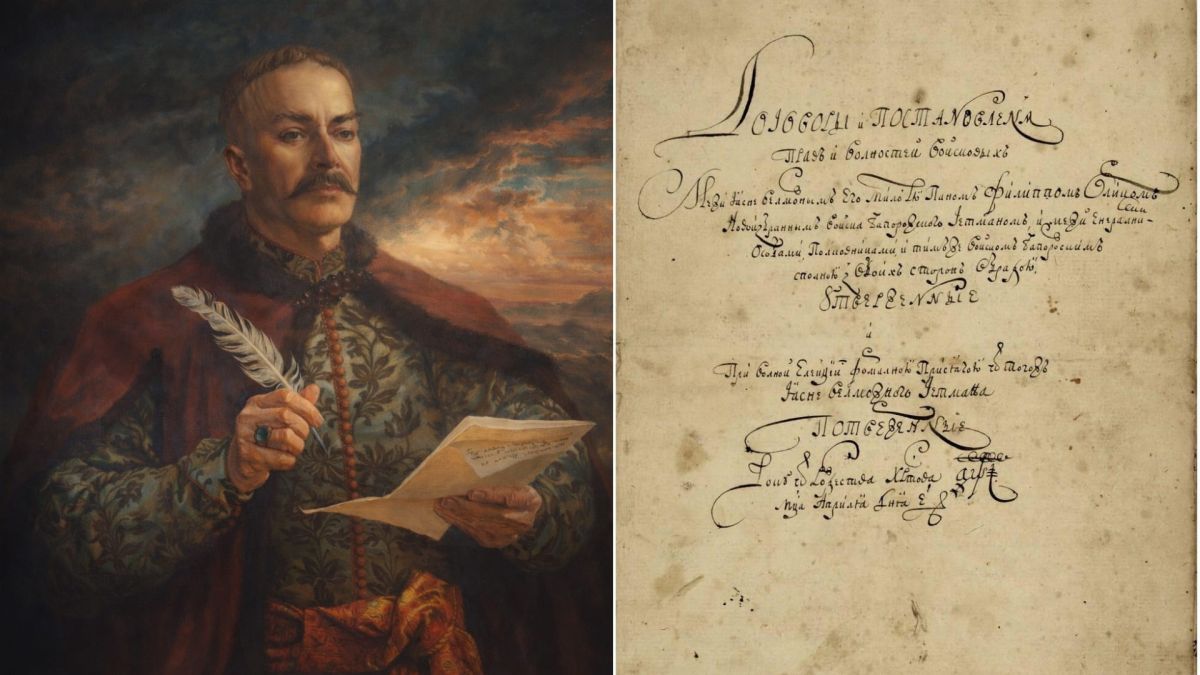 Договоры и Постановленя
Правъ и волностей войсковыхъ
Межи Ясне велможнымъ Его Милостю Паномъ Филиппомъ Орликомъ
Новоизбраннымъ войска Запорожского Гетманомъ, и межи Енералними
Особами, Полковниками, и тимъ же войскомъ Запорожскимъ
сполною з обоихъ сторонъ обрадою,
Утвержденные
и
При волной Елекцiи формалною Присягою от тогожъ
Ясне велможного Гетмана
Потверженные
Року от Рождества Христова
Мця Априля дня